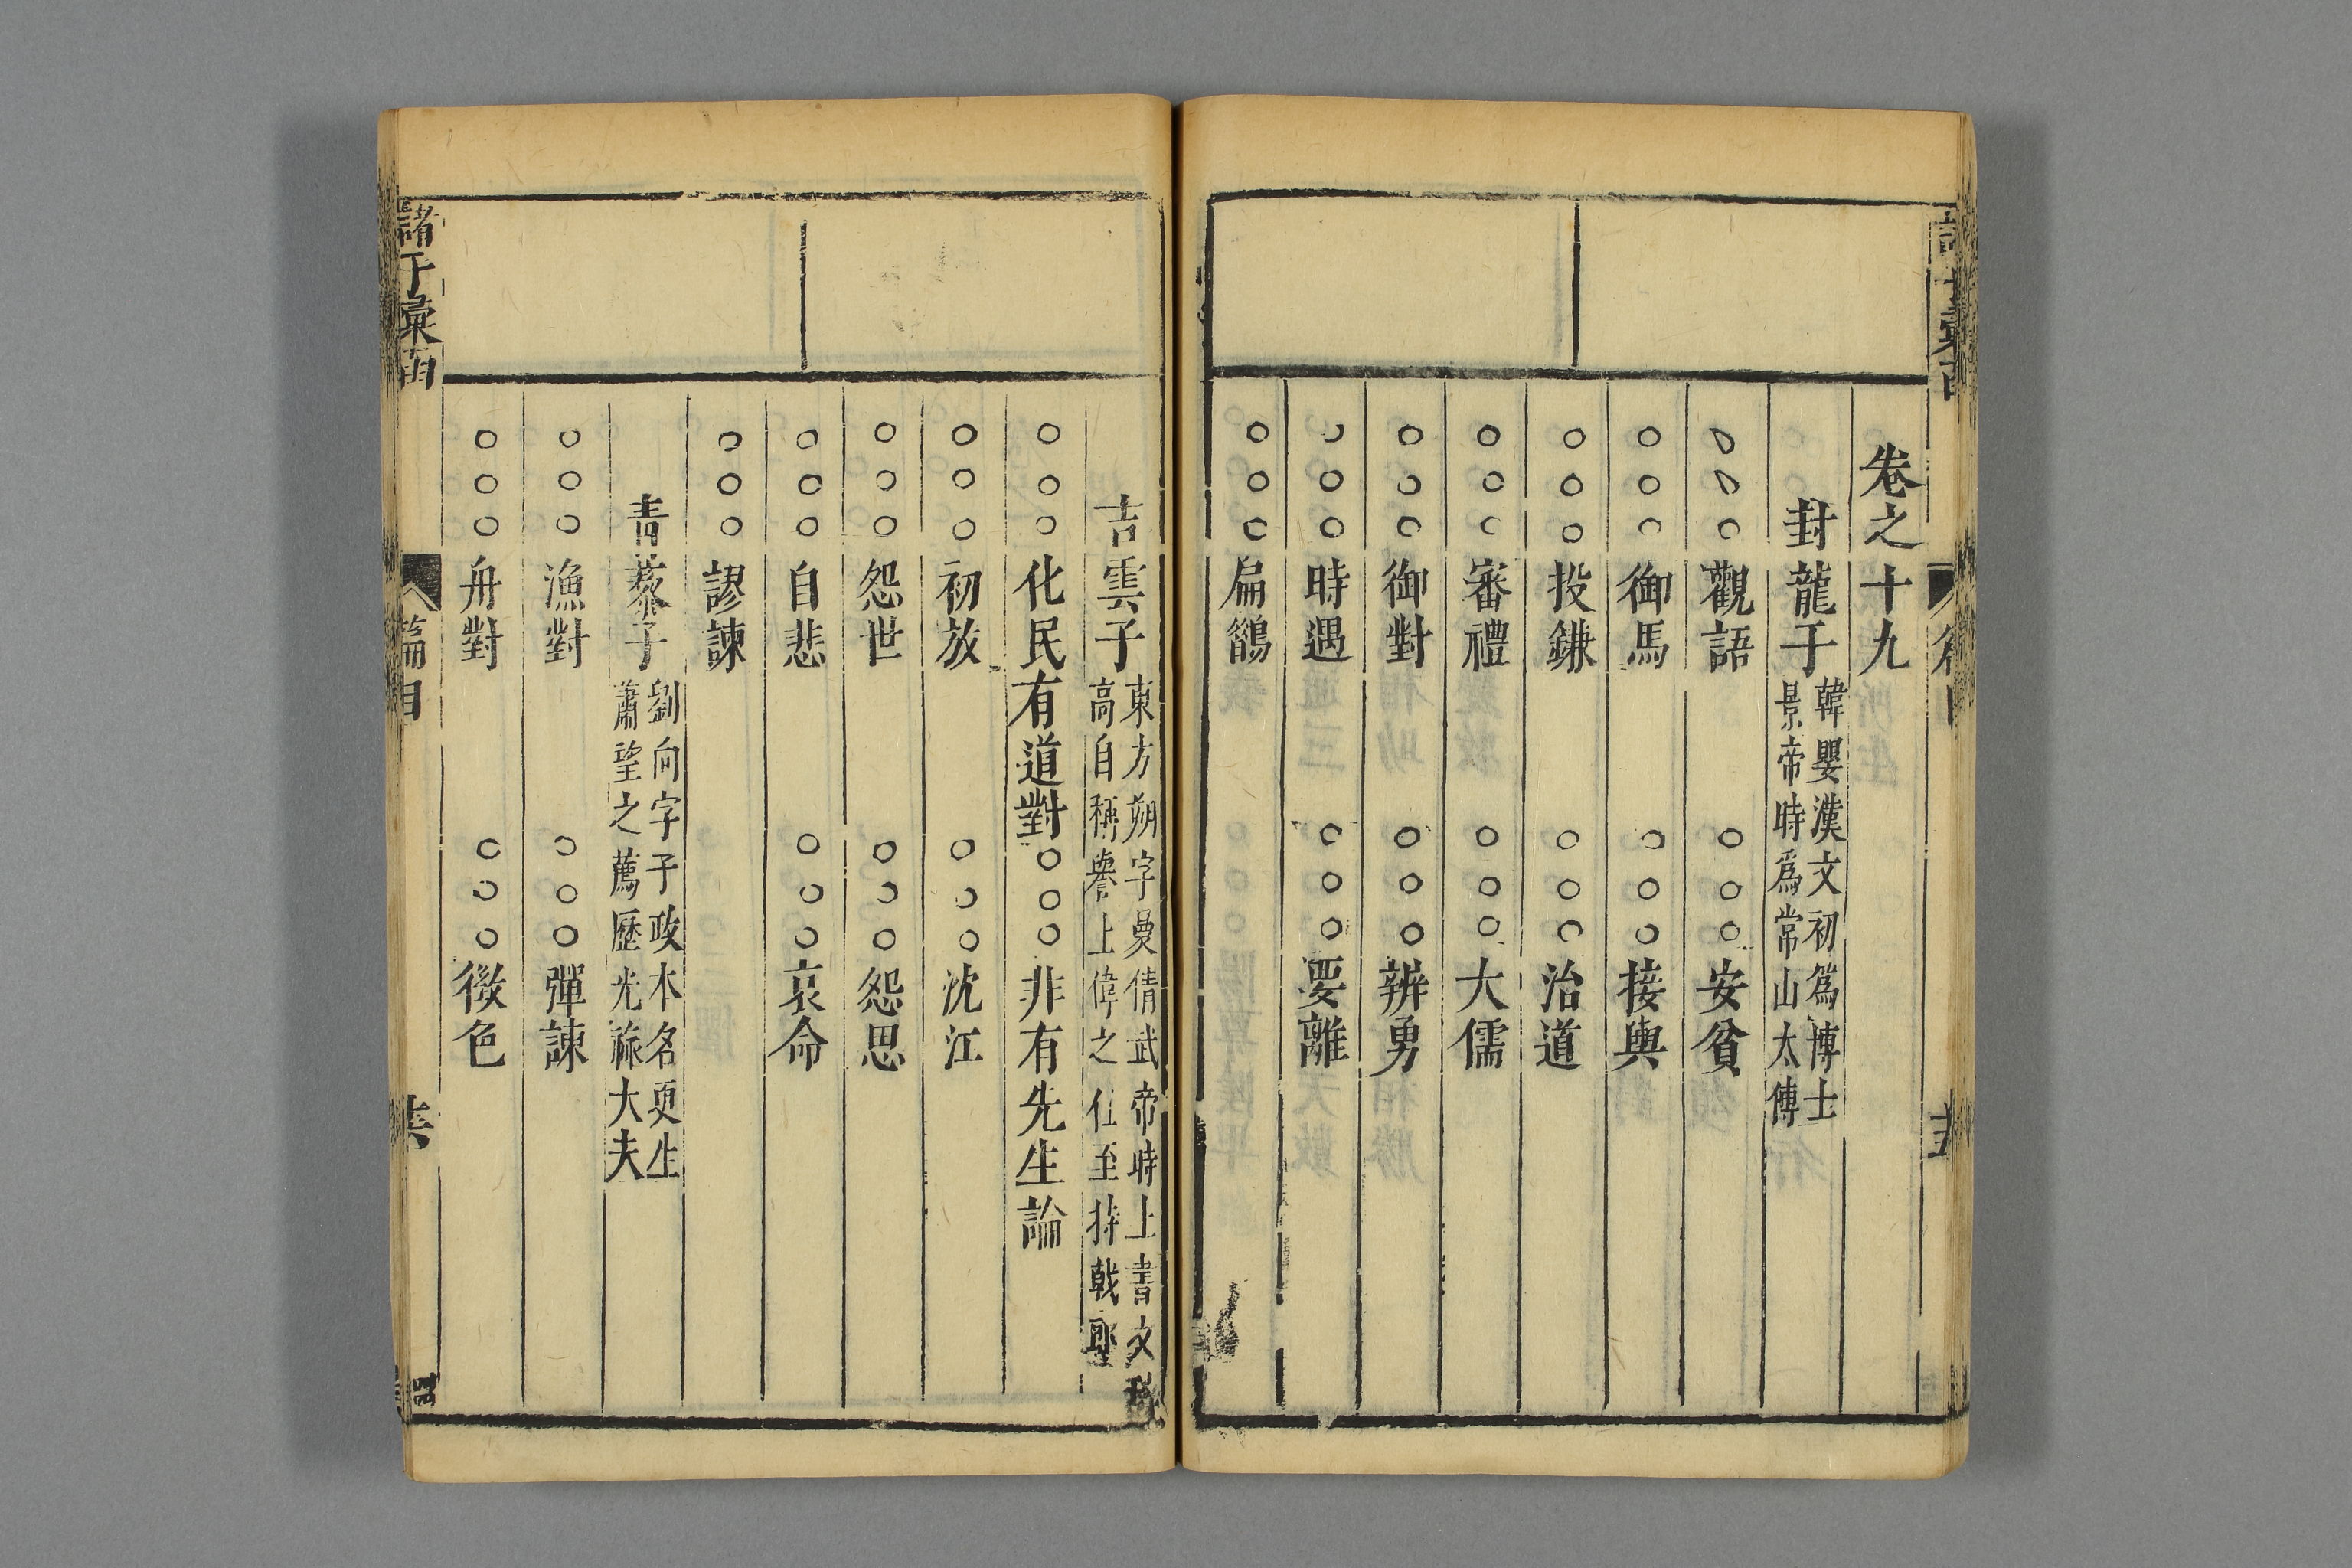 卷之十九
封龍子 韓嬰漢文初爲博士
景帝時爲常山太傅
○○○觀語 ○○○安貧
○○○御馬 ○○○接輿
○○○投鎌 ○○○治道
○○○審禮 ○○○大儒
○○○御對 ○○○辨勇
○○○時遇 ○○○要離
○○○扁鶴
吉雲子 東方朔字曼倩武帝時上書文辭
高自稱譽上偉之仕至持戟
○○○化民有道對○○○非有先生論
○○○初放 ○○○沈江
○○○怨世 ○○○怨思
○○○自悲 ○○○哀命
○○○謬諫
青藜子 劉向字子政本名更生
蕭望之薦歷光祿大夫
○○○漁對 ○○○彈諫
○○○舟對 ○○○微色
諸子彙函
篇目